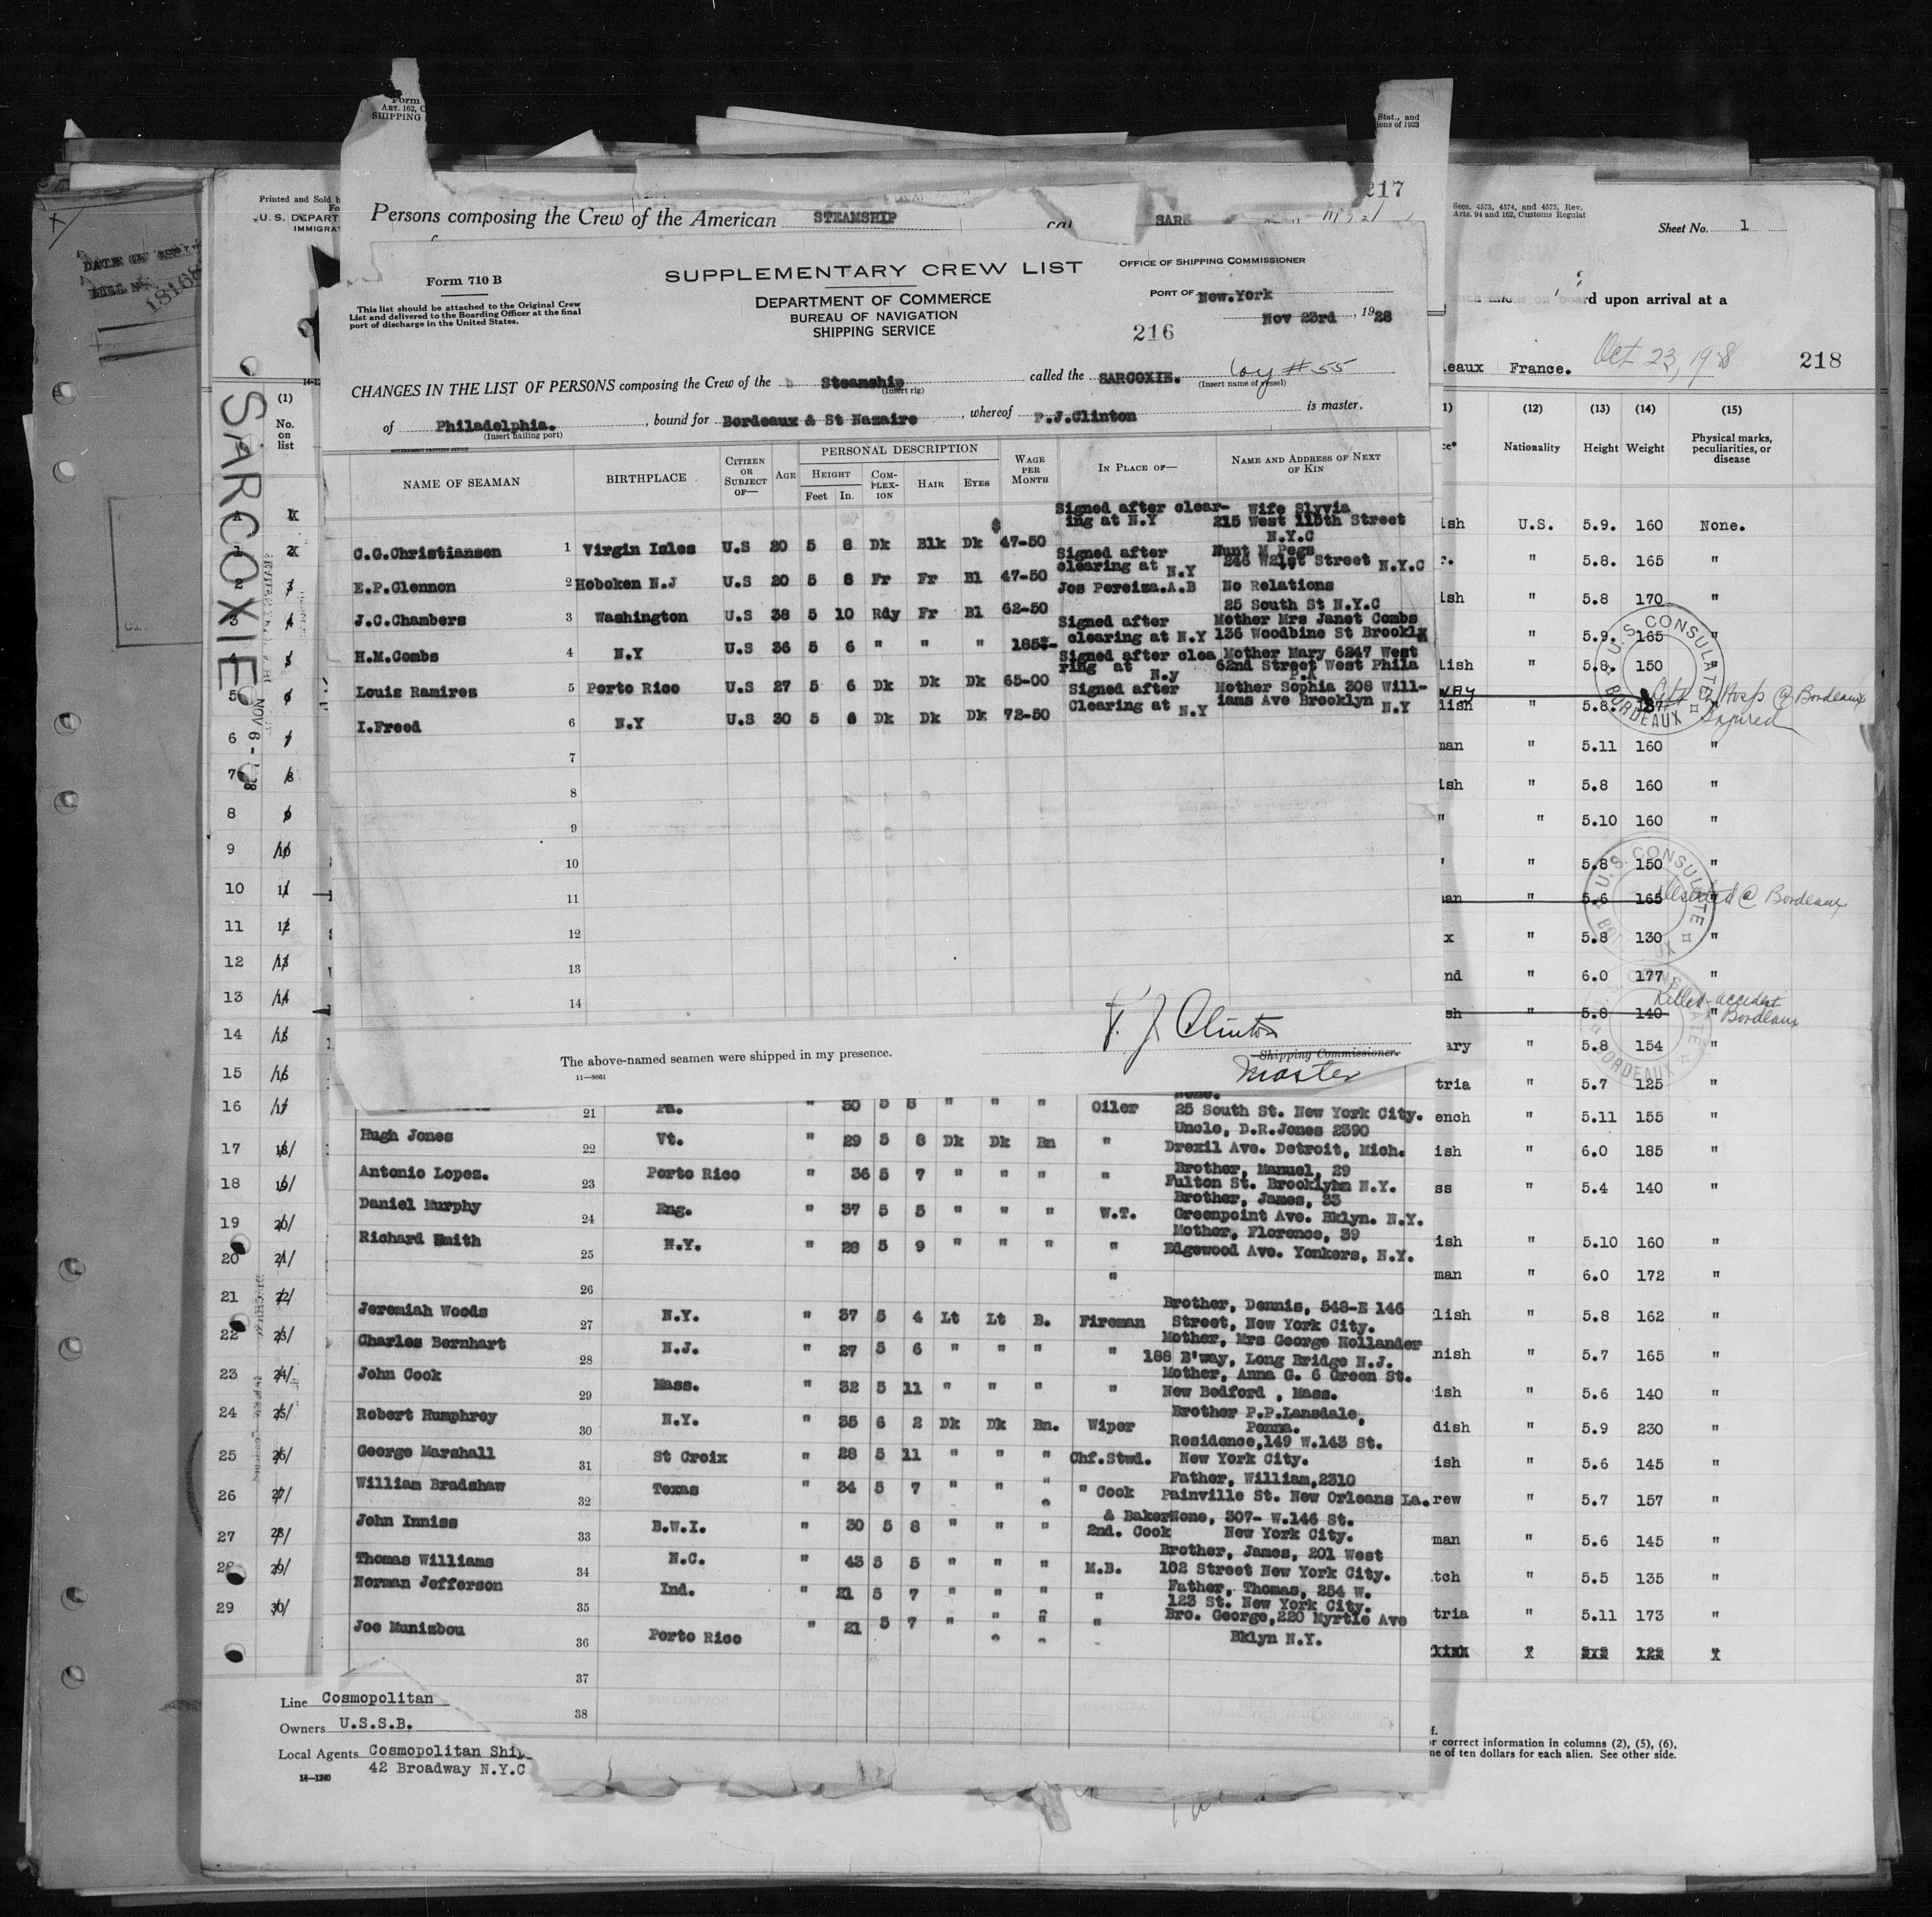 Form
ART. 162, C
SHIPPING
Stat., and
ions of 1923
217
Printed and Sold b
U.S. DEPART
IMMIGRAT
Persons composing the Crew of the American STEAMSHIP
Secs. 4573, 4574, and 4575, Rev.
Arts. 94 and 162, Customs Regulat
Sheet No. 1
rd upon arrival at a
leaux France. Oct 23, 1928
218
SARCOXIE
Form 710 B
This list should be attached to the Original Crew
List and delivered to the Boarding Officer at the final
port of discharge in the United States.
SUPPLEMENTARY CREW LIST
DEPARTMENT OF COMMERCE
BUREAU OF NAVIGATION
SHIPPING SERVICE
OFFICE OF SHIPPING COMMISSIONER
PORT OF New.York
Nov 23rd, 1928
216
CHANGES IN THE LIST OF PERSONS composing the Crew of the Steamship called the SARCOXIE. Coy #55
(Insert rig) (Insert name of vessel)
of Philadelphia., bound for Bordeaux & St Nazaire, whereof P.J.Clinton is master.
(Insert hailing port)
GOVERNMENT PRINTING OFFICE
NAME OF SEAMAN BIRTHPLACE CITIZEN OR SUBJECT OF— AGE PERSONAL DESCRIPTION HEIGHT Feet In. COMPLEX-ION HAIR EYES WAGE PER MONTH IN PLACE OF— NAME AND ADDRESS OF NEXT OF KIN
C.G.Christiansen 1 Virgin Isles U.S 20 5 8 Dk Blk Dk $ 47-50 Signed after clear-ing at N.Y Wife Slyvia 215 West 115th Street N.Y.C
E.P.Glennon 2 Hoboken N.J U.S 20 5 8 Fr Fr Bl 47-50 Signed after clearing at N.Y 246 W21st Street N.Y.C
J.C.Chambers 3 Washington U.S 38 5 10 Rdy Fr Bl 62-50 Jos Pereiza.A.B No Relations 25 South St N.Y.C
H.M.Combs 4 N.Y U.S 36 5 6 " " " 185 Signed after clearing at N.Y Mother Mrs Janet Combs 136 Woodbine St Brookl
Louis Ramirez 5 Porto Rico U.S 27 5 6 Dk Dk Dk 65-00 Signed after clea ring at N.y Mother Mary 6247 West 62nd Street West Phila P.A
I.Freed 6 N.Y U.S 30 5 6 Dk Dk Dk 72-50 Signed after Clearing at N.Y Mother Sophia 308 Will-iams Ave Brooklyn N.Y
7
8
9
10
11
12
13
14
P. J Clinton
The above-named seamen were shipped in my presence. Shipping Commissioner.
Master
11—8661
21 Pa. " 30 5 8 " " " Oiler 25 South St. New York City.
Hugh Jones 22 Vt. " 29 5 8 Dk Dk Bn " Uncle, D.R.Jones 2390 Drexil Ave. Detroit, Mich.
Antonio Lopez. 23 Porto Rico " 36 5 7 " " " " Brother, Manuel, 29 Fulton St. Brooklyhn N.Y.
Daniel Murphy 24 Eng. " 37 5 5 " " " W.T. Brother, James, 33 Greenpoint Ave. Bklyn. N.Y.
Richard Smith 25 N.Y. " 28 5 9 " " " " Mother, Florence, 39 Edgewood Ave. Yonkers, N.Y.
26 "
Jeremiah Woods 27 N.Y. " 37 5 4 Lt Lt B. Fireman Brother, Dennis, 548-E 146 Street, New York City.
Charles Bernhart 28 N.J. " 27 5 6 " " " " Mother, Mrs George Hollander 188 B'way, Long Bridge N.J.
John Cook 29 Mass. " 32 5 11 " " " " Mother, Anna G. 6 Green St. New Bedford, Mass.
Robert Humphrey 30 N.Y. " 35 6 2 Dk Dk Bn. Wiper Brother P.P.Lansdale, Penna.
George Marshall 31 St Croix " 28 5 11 " " " Chf.Stwd. Residence,149 W.143 St. New York City.
William Bradshaw 32 Texas " 34 5 7 " " " " Cook Father, William,2310 Painville St. New Orleans La.
John Inniss 33 B.W.I. " 30 5 8 " " " & Baker 2nd. Cook None, 307- W.146 St. New York City.
Thomas Williams 34 N.C. " 43 5 5 " " " M.B. Brother, James, 201 West 102 Street New York City.
Norman Jefferson 35 Ind. " 21 5 7 " " " " Father, Thomas, 254 W. 123 St. New York City.
Joe Munizbou 36 Porto Rico " 21 5 7 " " " " Bro. George,220 Myrtle Ave Bklyn N.Y.
37
38
(1)
No. on list
1
2
3
4
5
6
7
8
9
10
11
12
13
14
15
16
17
18
19
20
21
22
23
24
25
26
27
28
29
NOV 6 -
(12) (13) (14) (15)
Nationality Height Weight Physical marks, peculiarities, or disease
ish U.S. 5.9. 160 None.
" 5.8. 165 "
ish " 5.8 170 "
" 5.9. 165 "
lish " 5.8. 150 "
lish " 5.8. "
Hosp @ Bordeaux
Injured
man " 5.11 160 "
ish " 5.8 160 "
" " 5.10 160 "
" 5.8 150 "
an " 5.6 165 Deserted @ Bordeaux
x " 5.8 130 "
nd " 6.0 177 "
sh " 5.8 140 " Killed-accident Bordeaux
ary " 5.8 154 "
tria " 5.7 125 "
ench " 5.11 155 "
ish " 6.0 185 "
ss " 5.4 140 "
ish " 5.10 160 "
man " 6.0 172 "
lish " 5.8 162 "
nish " 5.7 165 "
ish " 5.6 140 "
dish " 5.9 230 "
ish " 5.6 145 "
rew " 5.7 157 "
man " 5.6 145 "
tch " 5.5 135 "
tria " 5.11 173 "
U.S. CONSULATE
BORDEAUX
Line Cosmopolitan
Owners U.S.S.B.
Local Agents Cosmopolitan Ship
42 Broadway N.Y.C
14—1240
r correct information in columns (2), (5), (6),
ne of ten dollars for each alien. See other side.